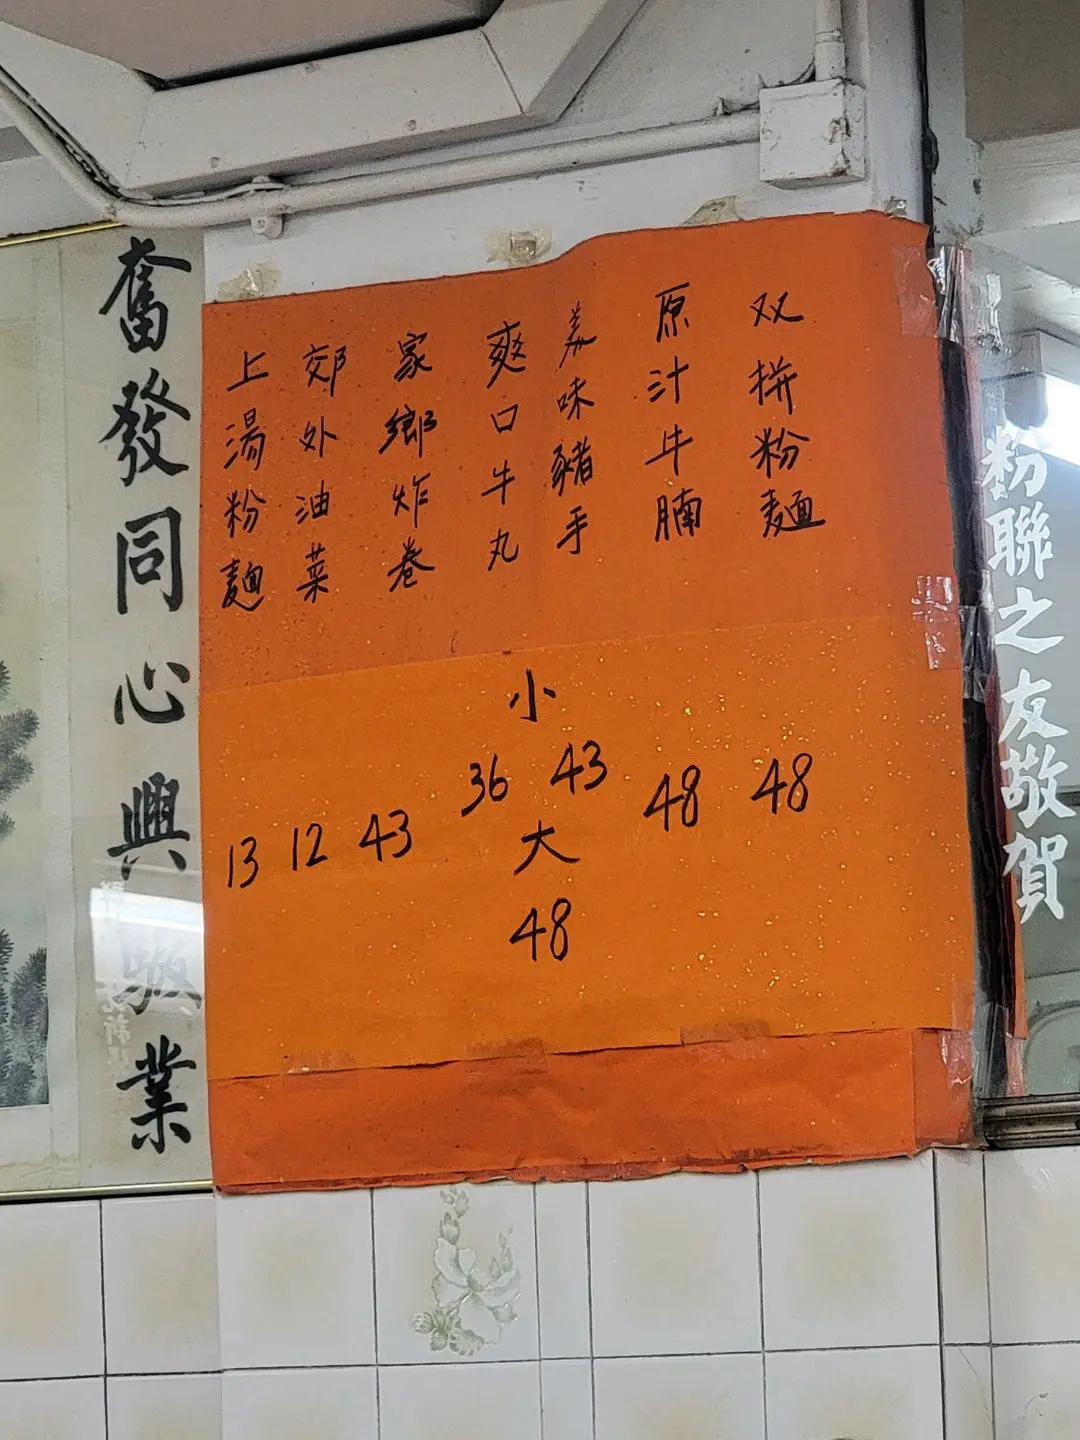 粉聯之友敬賀
双拼粉麵
原汁牛腩
美味豬手
爽口牛丸
家鄉炸卷
郊外油菜
上湯粉麵
48
48
小
43
36
大
48
43
12
13
奮發同心興駿業